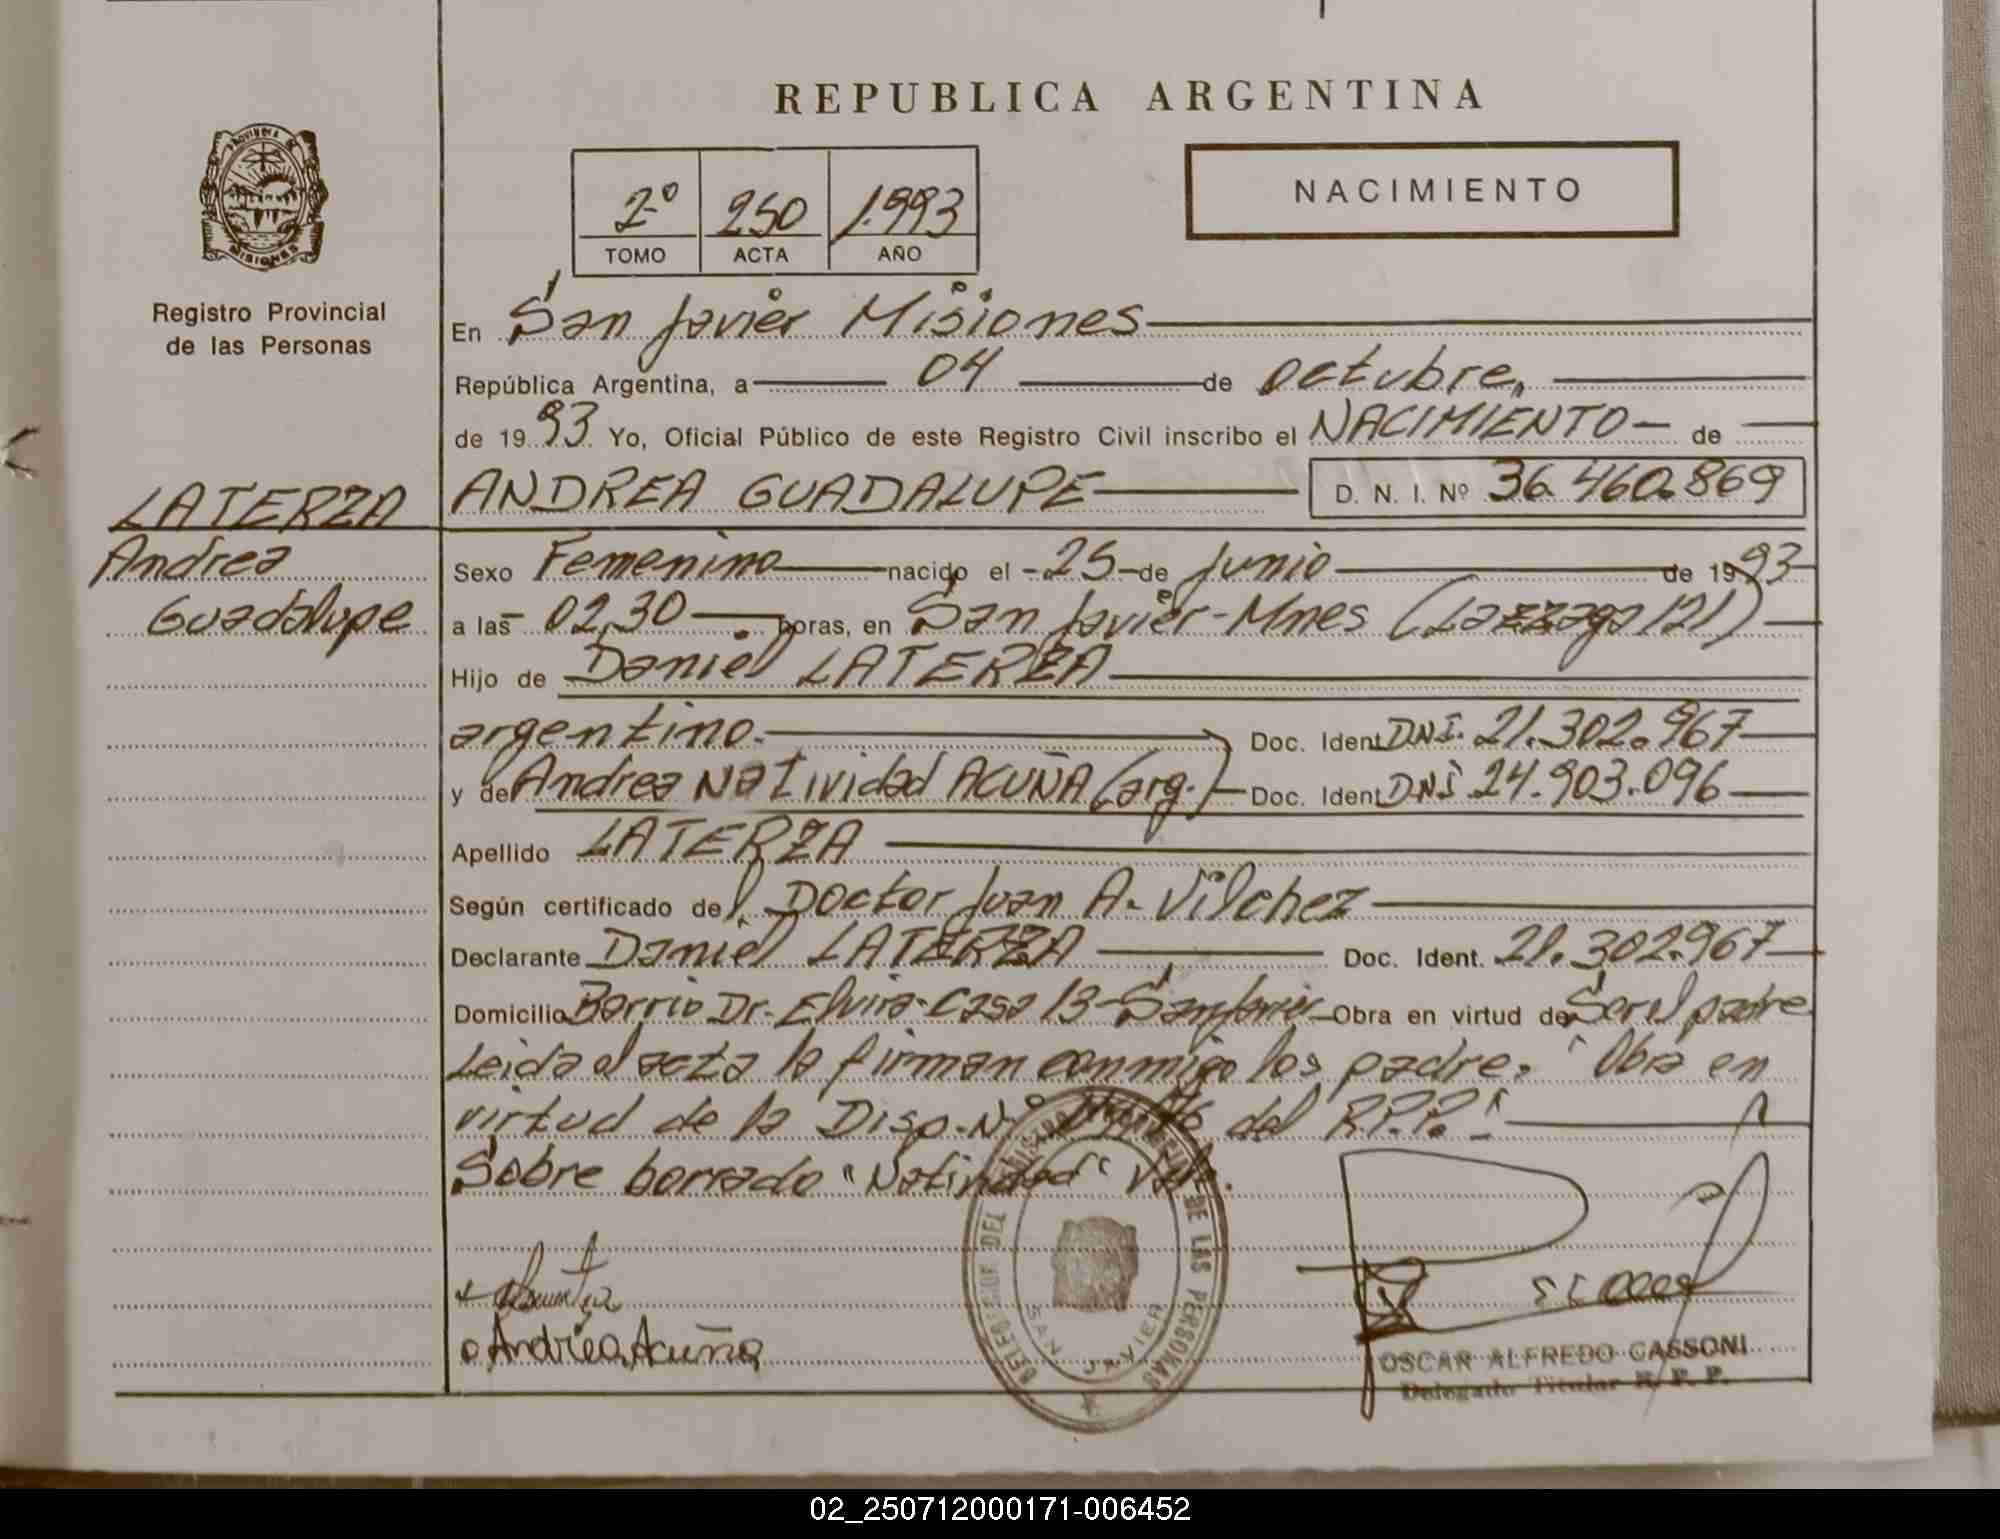 REPUBLICA ARGENTINA
PROVINCIA DE
MISIONES
Registro Provincial
de las Personas
2º 250 1.993
TOMO ACTA AÑO
NACIMIENTO
En San Javier Misiones
República Argentina, a 04 de octubre,
de 1993 Yo, Oficial Público de este Registro Civil inscribo el NACIMIENTO de
ANDREA GUADALUPE D. N. I. Nº 36.460.869
LATERZA
Andrea
Guadalupe
Sexo Femenino nacido el 25 de Junio de 1993
a las 02,30 horas, en San Javier-Mnes (Lazzaga 121)
Hijo de Daniel LATERZA
argentino. Doc. Ident DNI. 21.302.967
y de Andrea Natividad ACUÑA (arg.) Doc. Ident DNI 24.903.096
Apellido LATERZA
Según certificado del Doctor Juan A. Vilchez
Declarante Daniel LATERZA Doc. Ident. 21.302.967
Domicilio Barrio Dr. Elvira-Casa 13-San Javier Obra en virtud de Ser el padre
Leida el acta la firman conmigo los padre. "Obra en
virtud de la Disp. Nº del R.P.P."
Sobre borrado "Natividad" Vale.
Andrea Acuña
DELEGACION DEL REGISTRO PROVINCIAL DE LAS PERSONAS
SAN JAVIER
OSCAR ALFREDO CASSONI
Delegado Titular R. P. P.
02_250712000171-006452